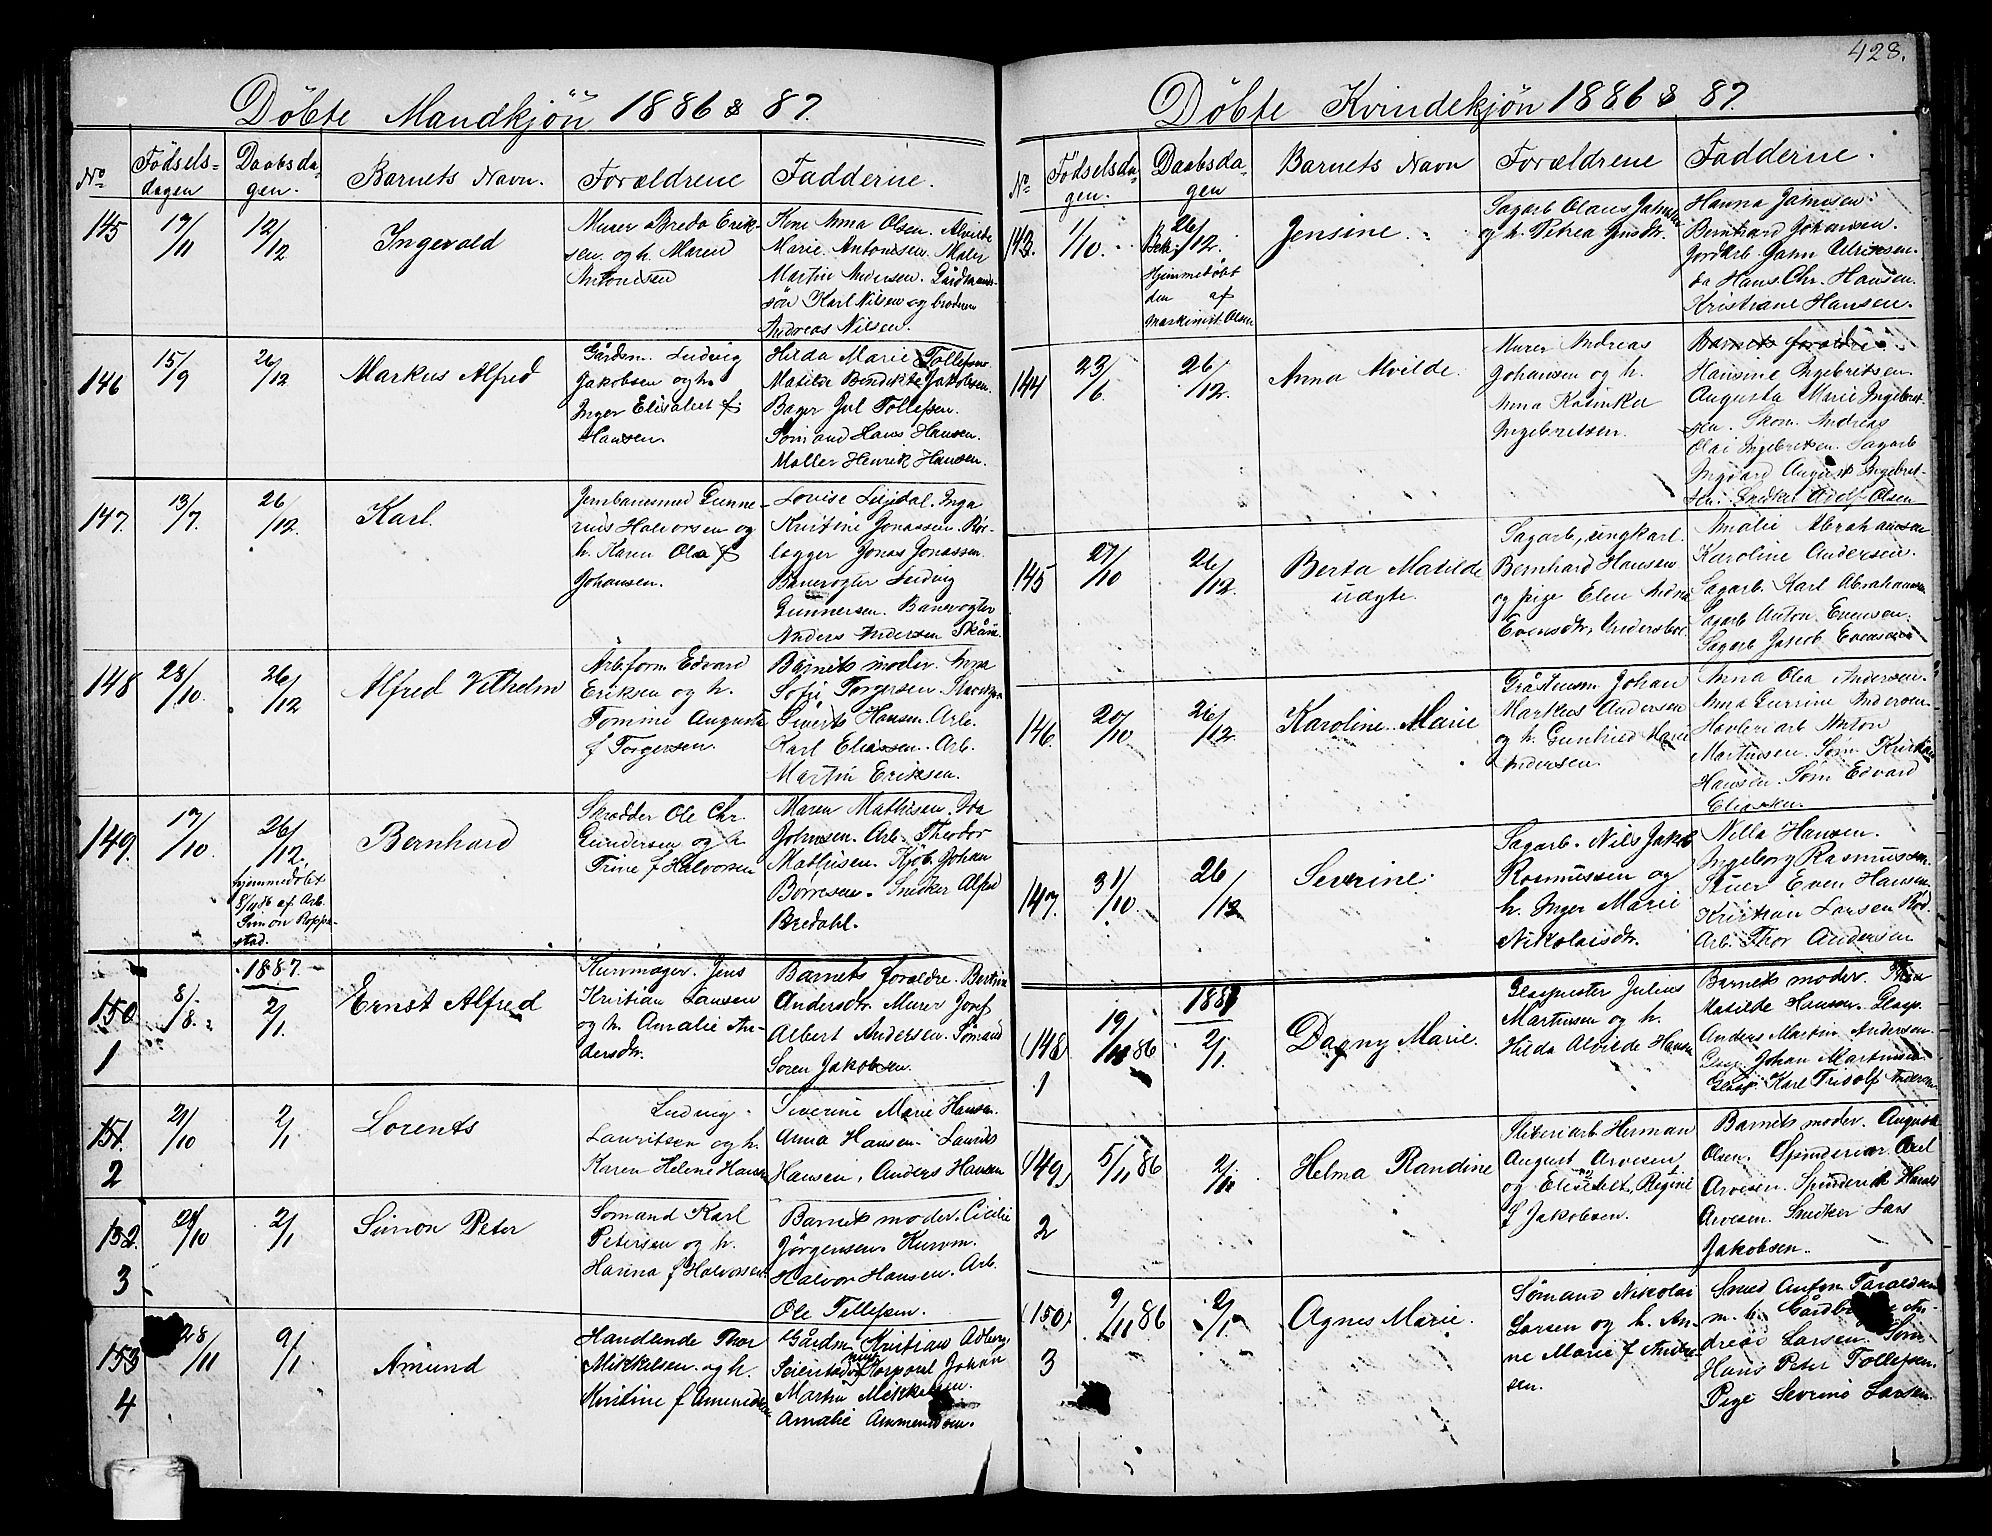 428.
Döbte Mandkjön 1886 & 87.
No
Födsels-
dagen
Daabsda-
gen.
Barnets Navn.
Forældrene
Fadderne.
145
17/11
12/12
Ingevald
Murer Bredo Erik-
sen og h. Maren
Antonisen
Kone Anna Olsen. Alvilde
Marie Antonissen. Maler
Martin Andersen. Gårdmands-
sön Karl Nilsen og broderen
Andreas Nilsen.
146
15/9
26/12
Markus Alfred
Gårdsm. Ludvig
Jakobsen og h.
Inger Elisabet f.
Hansen.
Hilda Marie Tollefsen
Matilde Bendikte Jakobsen.
Bager Jul Tollefsen.
Sömand Hans Hansen.
Möller Henrik Hansen.
147.
13/7.
26/12.
Karl.
Jernbanesmed Gunne-
rius Halvorsen og
h. Karen Ola f
Johansen.
Lovise Lijdal. Inga
Kristine Jonassen. Rör-
legger Jonas Jonassen.
Banevogter Ludvig
Gunnersen. Banevogter
Anders Andersen Skåne.
148
28/10.
26/12
Alfred Vilhelm
Arb.form. Edvard
Eriksen og h.
Tomine Augusta
f Torgersen.
Barnets moder. Anna
Sofie Torgersen.
Sivert Hansen. Arb.
Karl Eliassen. Arb.
Martin Eriksen.
149.
17/10.
26/12.
hjemmedöbt
8/11 86 af Arb.
Simon Roppe-
stad.
Bernhard
Skrædder Ole Chr.
Gundersen og h
Trine f Halvorsen
Maren Mathisen. Ida
Johnsen. Arb. Theodor
Mathisen. Kjöb. Johan
Börresen. Snedker Alfred
Bredahl.
1887.
150
1
8/8.
2/1.
Ernst Alfred
Kurvmager. Jens
Kristian Laursen
og h. Amalie An-
dersdtr.
Barnets forældre. Bertine
Andersdtr. Murer Josef
Albert Andersen. Sömand
Sören Jakobsen.
151.
2
2/10
2/1
Lorents
Ludvig
Lauritsen og h.
Karen Helene Hansen
Severine Marie Hansen.
Anna Hansen. Laurits
Hansen, Anders Hansen
152.
3
29/10
2/1
Simon Peter
Sömand Karl
Petersen og h.
Harina f Halvorsen.
Barnets moder. Cicilie
Jörgensen. Kurvm.
Halvor Hansen. Arb.
Ole Tellefsen.
153
4
28/11
9/1
Amund
Handlende Thor
Mikkelsen og h.
Kristine f Amundsen
Gårdm Kristian Adberg
Korporal Johan
Martin Mikkelsen.
Amalie Ammundsen.
Döbte Kvindekjön 1886 & 87.
No
Födselsda-
gen.
Daabsda-
gen
Barnets Navn
Forældrene
Fadderne.
143.
1/10.
26/12.
Hjemmedöbt
den af
Maskinist Olsen
Jensine.
Sagarb Olaus Jahnsen
og h. Petrea Jensdtr.
Hanna Jahnsen.
Bernhard Johansen.
Jordarb. John Ulriksen.
do Hans Chr. Hansen.
Kristiane Hansen.
144
23/6.
26/12.
Anna Alvilde.
Murer Andreas
Johansen og h.
Anna Kasinka
Ingebretsen.
Barnets forældre.
Hansine Ingebritsen.
Augusta Marie Ingebret-
sen. Skom. Andreas
Olai Ingebretsen. Sagarb
Ingvard August Ingebret-
sen. Snedker Adolf Olsen
145
27/10
26/12.
Berta Matilde
uägte.
Sagarb., ungkarl.
Bernhard Hansen
og pige Elen Andrea
Evensdtr,
Amalie Abrahamsen
Karoline Andersen.
Sagarb. Karl Abrahamsen
Sagarb Anton Evensen.
Sagarb Jakob Evensen
146.
20/10
26/12
Karoline Marie
Gråstensm Johan
Markus Andersen
og h. Gunhild Marie
Andersen.
Anna Olea Andersen.
Anna Gurrine Andersen
Hövleriarb Anton
Martinsen. Söm. Kristian
Hansen. Söm Edvard
Eliassen.
147.
31/10.
26/12
Severine.
Sagarb. Nils Jakob
Rasmussen og
h. Inger Marie
Nikolaisdtr.
Nilla Hansen.
Ingeborg Rasmussen
Stuer Even Hansen.
Kristian Larsen
Arb. Thor Andersen
1887
(148)
1
19/11 86
2/1.
Dagny Marie.
Glaspuster Julius
Martinsen og h.
Hilda Alvilde Hansen
Barnets moder. Thea
Matilde Hansen. Glasp.
Anders Martin Andersen
Glasp Johan Martinsen
Glasp. Karl Fridolf Andersen
(149)
2
5/11 86
2/1.
Helma Randine
Sliberiarb Herman
August Arvesen
og Elisabet Regine
f Jakobsen.
Barnets moder. Augusta
Olsen. Spinderiar. Axel
Arvesen. Spinderiarb Harald
Arvesen. Snedker Lars
Jakobsen.
(150)
3
9/11 86
2/1.
Agnes Marie.
Sömand Nikolai
Larsen og h. An-
ne Marie f Andre-
sen.
Smed Anton Taraldsen
m. h. Gårdbr. An-
dreas Larsen. Söm
Hans Peter Tollefsen.
Pige Severine Larsen